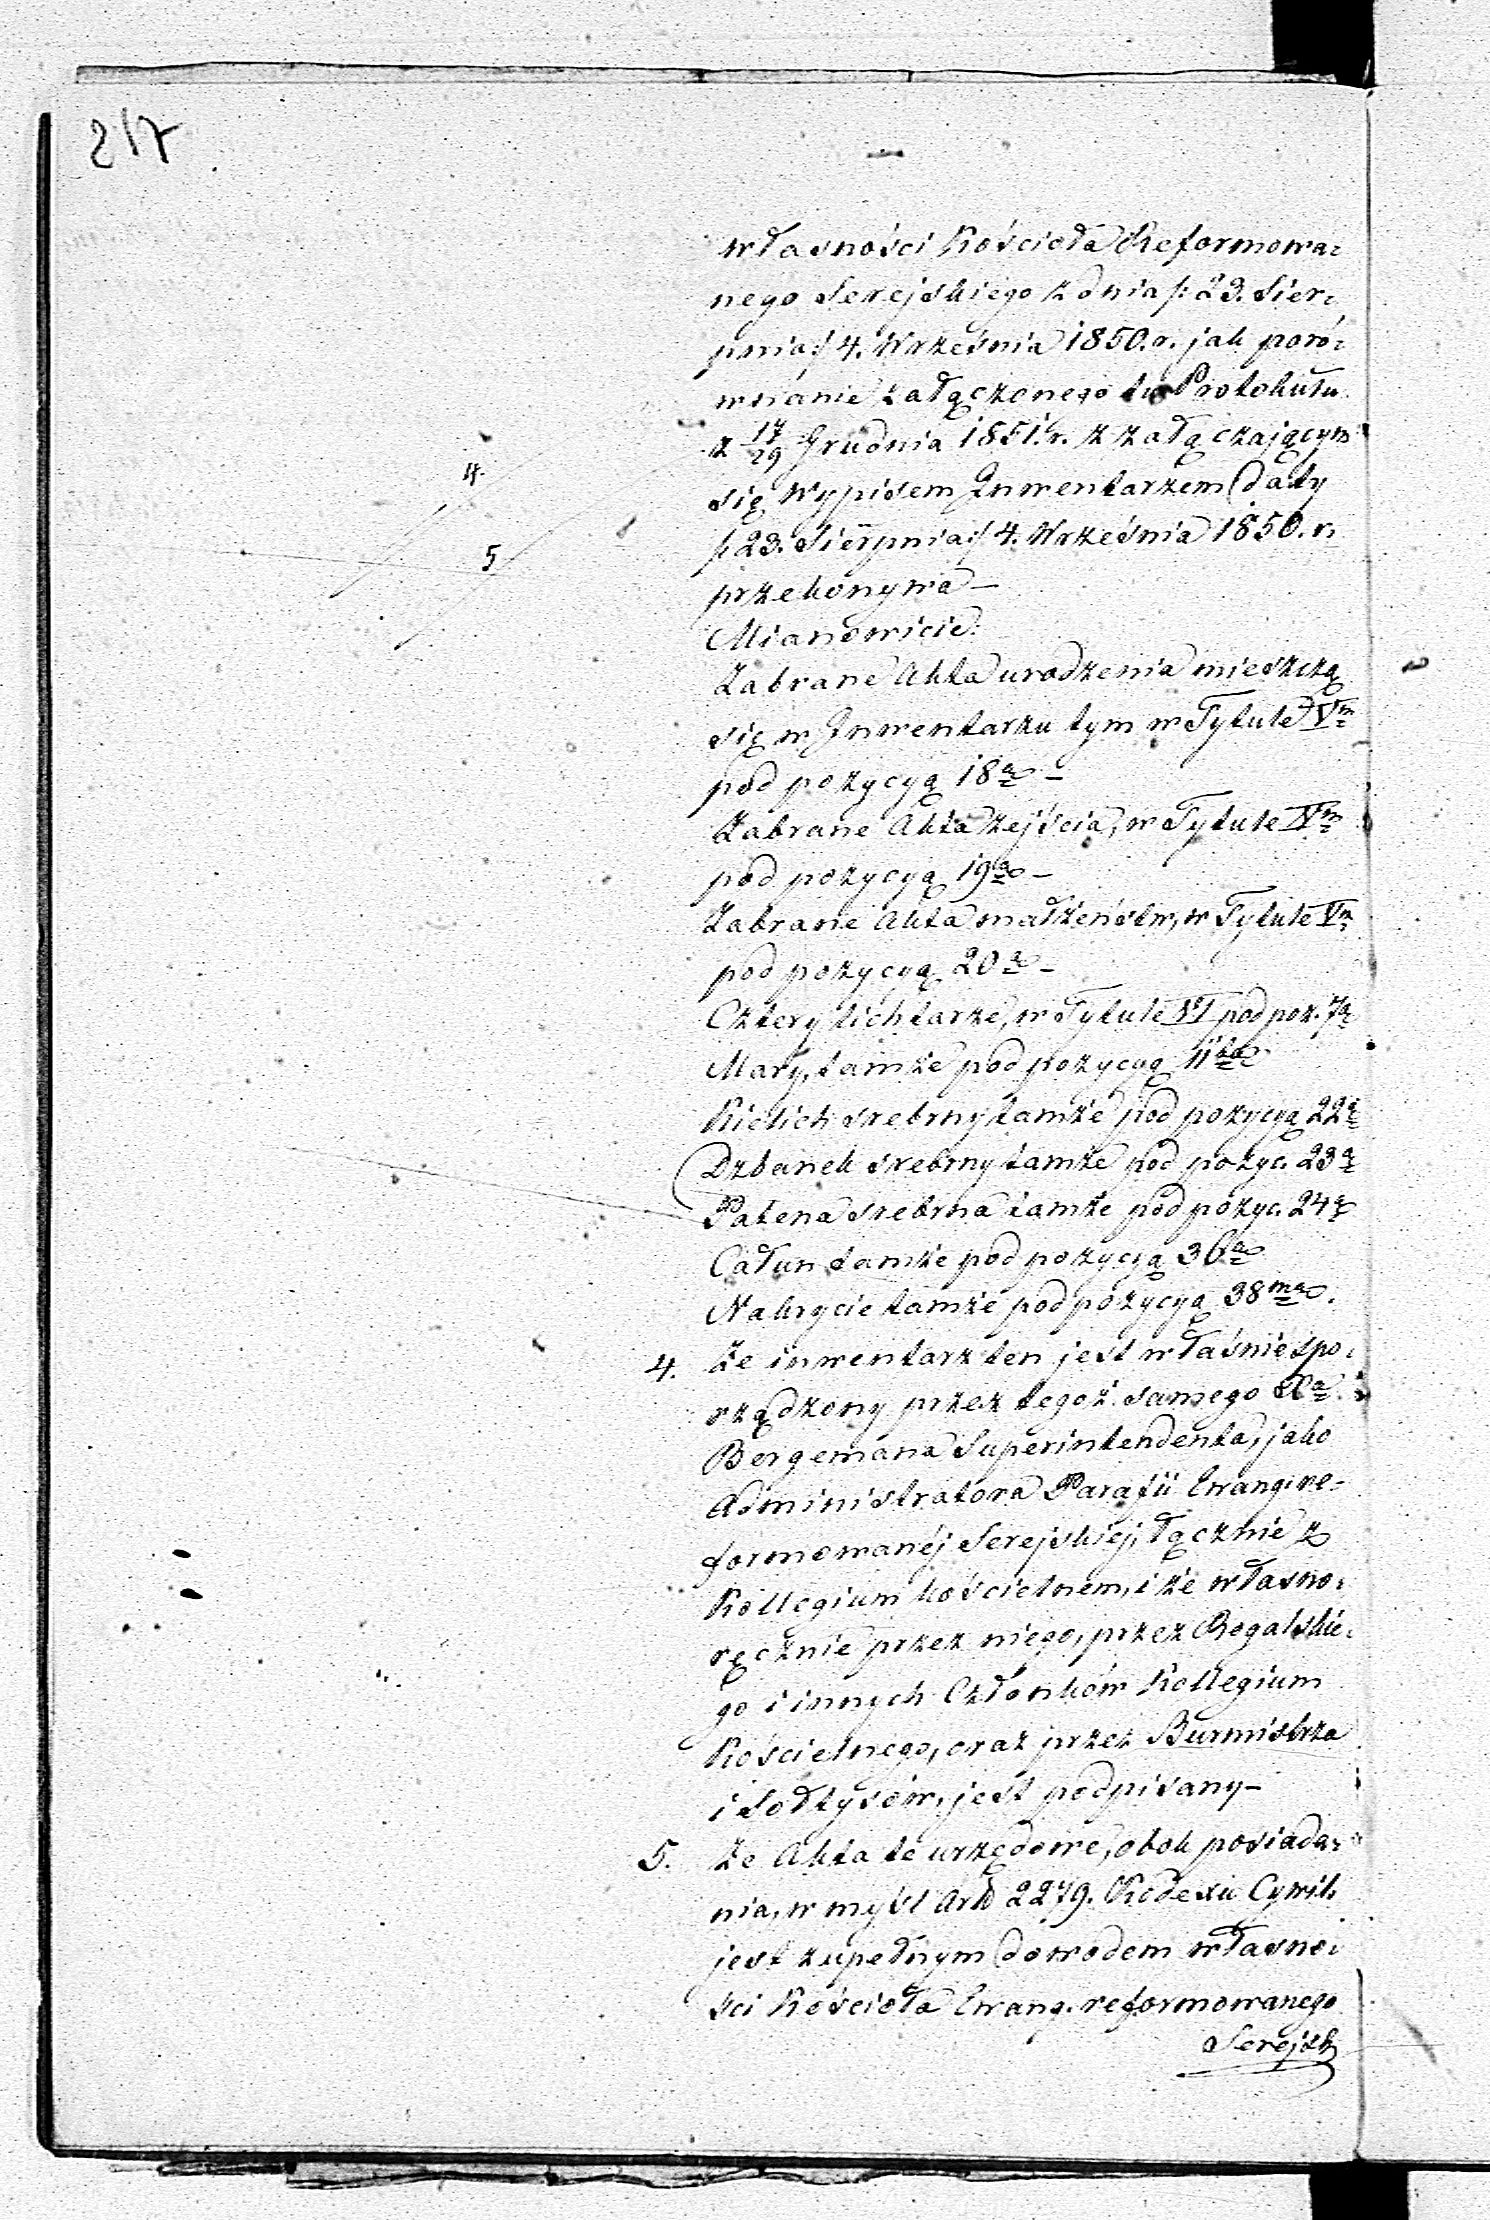 217
własności Kościoła Reformowa=
nego Serejskiego z dnia /: 23. Sier=
pnia :/ 4. Września 1850. r. jak poró=
wnanie załączonego tu Protokułu
z 17/29 Grudnia 1851. r. z załączającym
się Wypisem Inwentarzem daty
/: 23. Sierpnia :/ 4. Września 1850. r.
przekonywa –
Mianowicie:
Zabrane Akta urodzenia mieszczą
się w Inwentarzu tym w Tytule Vm
pod pozycyą 18ą –
Zabrane Akta zejścia, w Tytule Vm
pod pozycyą 19ą –
Zabrane Akta małżeństw, w Tytule Vm
pod pozycyą 20ą –
Cztery lichtarze, w Tytule VI pod poz. 7ą
Mary, tamże pod pozycyą 11tą
Kielich srebrny tamże pod pozycyą 22ą
Dzbanek srebrny tamże pod pozyc. 23ą
Patena srebrna tamże pod pozyc. 24ą
Całun tamże pod pozycyą 36ą
Nakrycie tamże pod pozycyą 38mą.
4. Że inwentarz ten jest właśnie spo=
rządzony przez tegoż samego Xa
Bergemana Superintendenta, jako
Administratora Parafii Ewang. re=
formowanéj Serejskiej, łącznie z
Kollegium kościelnem, i że własno=
ręcznie przez niego, przez Rogalskie=
go i innych Członków Kollegium
Kościelnego, oraz przez Burmistrza
i Sołtysów, jest podpisany –
5. Że Akta te urzędowe, obok posiada=
nia, w myśl Art 2279. Kodexu Cywil.
jest zupełnym dowodem własno=
sci Kościoła Ewang. reformowanego
Serejsk
4.
5